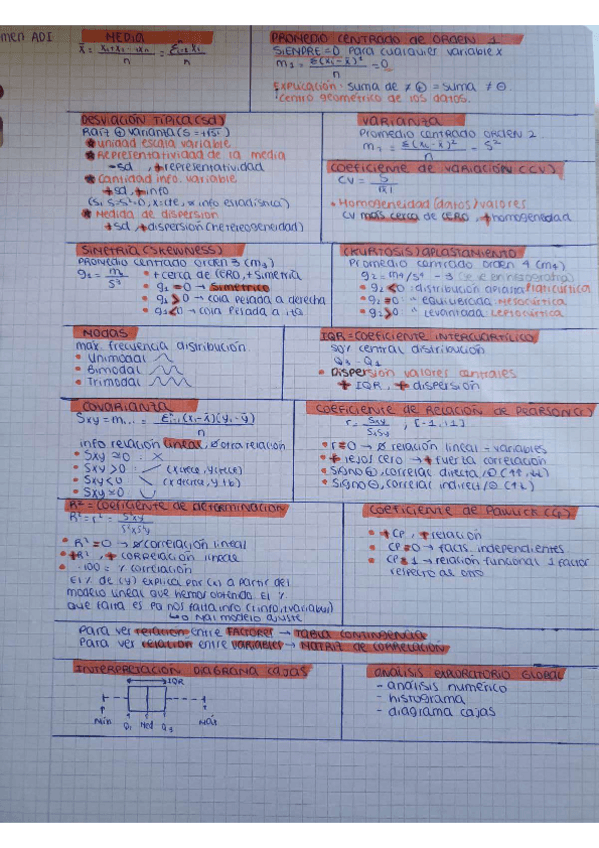 MEDIA
x̄ = x₁+x₂...+xn / n = Σⁿᵢ₌₁ xᵢ / n
PROMEDIO CENTRADO de ORDEN 1
SIEMPRE = 0 para cualquier variable x
n
Explicación: suma de ≠ ⊕ = suma ≠ ⊖
centro geométrico de los datos.
DESVIACIÓN TÍPICA (sd)
Raíz ⊕ varianza
* unidad escala variable
* Representatividad de la media
-sd, +representatividad
* Cantidad info. variable
+sd, +info
* Medida de dispersión
+sd, +dispersión (heterogeneidad)
VARIANZA
Promedio centrado orden 2
COEFICIENTE de VARIACIÓN (CV)
CV = S / |x̄|
• Homogeneidad (datos) valores
CV mas cerca de CERO, + homogeneidad
SIMETRÍA (SKEWNESS)
PROMEDIO centrado orden 3 (m₃)
• + cerca de CERO, + Simetría
• g₁ = 0 → Simétrico
• g₁ > 0 → cola pesada a derecha
• g₁ < 0 → cola pesada a izq
(KURTOSIS) APLASTAMIENTO
Promedio centrado orden 4 (m₄)
g₂ = m₄/s⁴ - 3
• g₂ < 0 : distribución aplana Platicúrtica
• g₂ = 0 : " equilibrada Mesocúrtica
• g₂ > 0 : " Levantada Leptocúrtica
MODAS
max. frecuencia distribución
• Unimodal
• Bimodal
• Trimodal
IQR = COEFICIENTE INTERCUARTÍLICO
50% central distribución
Q₃ - Q₁
• Dispersión valores centrales
+ IQR, + dispersión
COVARIANZA
Sxy = m₁₁ = Σⁿᵢ₌₁ (xᵢ-x̄)(yᵢ-ȳ) / n
info relación lineal, ø otra relación
• Sxy ≃ 0 : X
• Sxy > 0 : (x crece, y crece)
• Sxy < 0
• Sxy = 0 :
COEFICIENTE de RELACIÓN de PEARSON (r)
r = Sxy / SxSy, [-1,1]
• r = 0 → ø relación lineal - variables
• + lejos cero → + fuerte correlación
• Signo ⊕, correlac directa
• Signo ⊖, correlac indirect
R² = COEFICIENTE de DETERMINACIÓN
R² = r² = S²xy / S²xS²y
• R² = 0 → ø correlación lineal
• +R², + correlación lineal
• ·100 = % correlación
El % de (y) explica por (x) a partir del
modelo lineal que hemos obtenido. El %
que falta es pq nos falta info
↳ o mal modelo ajuste
COEFICIENTE de
• + CP, + relación
• CP = 0 → facts. independientes
• CP = 1 → relación funcional 1 factor
respecto al otro
Para ver relación entre FACTORES → TABLA CONTINGENCIA
Para ver relación entre VARIABLES → MATRIZ de CORRELACIÓN
INTERPRETACIÓN DIAGRAMA CAJAS
IQR
Mín Q₁ Med Q₃ Máx
ANÁLISIS EXPLORATORIO GLOBAL
- análisis numérico
- histograma
- diagrama cajas